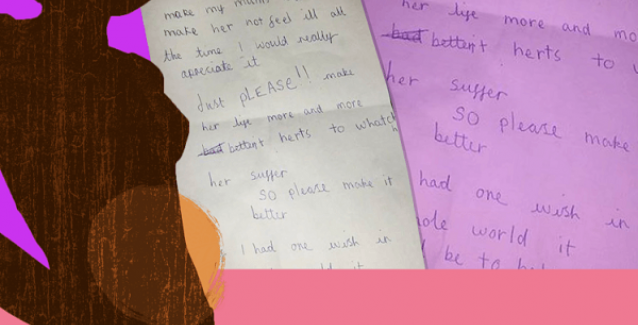 make my
make her not feel ill all
the time I would really
apreciate it
Just pLEASE!! make
her life more and more
bad better it herts to whatch
her suffer
SO please make it
better
I had one wish in
her life more and mo
bad better it herts to
her suffer
SO please make
better
had one wish in
ole world it
be to